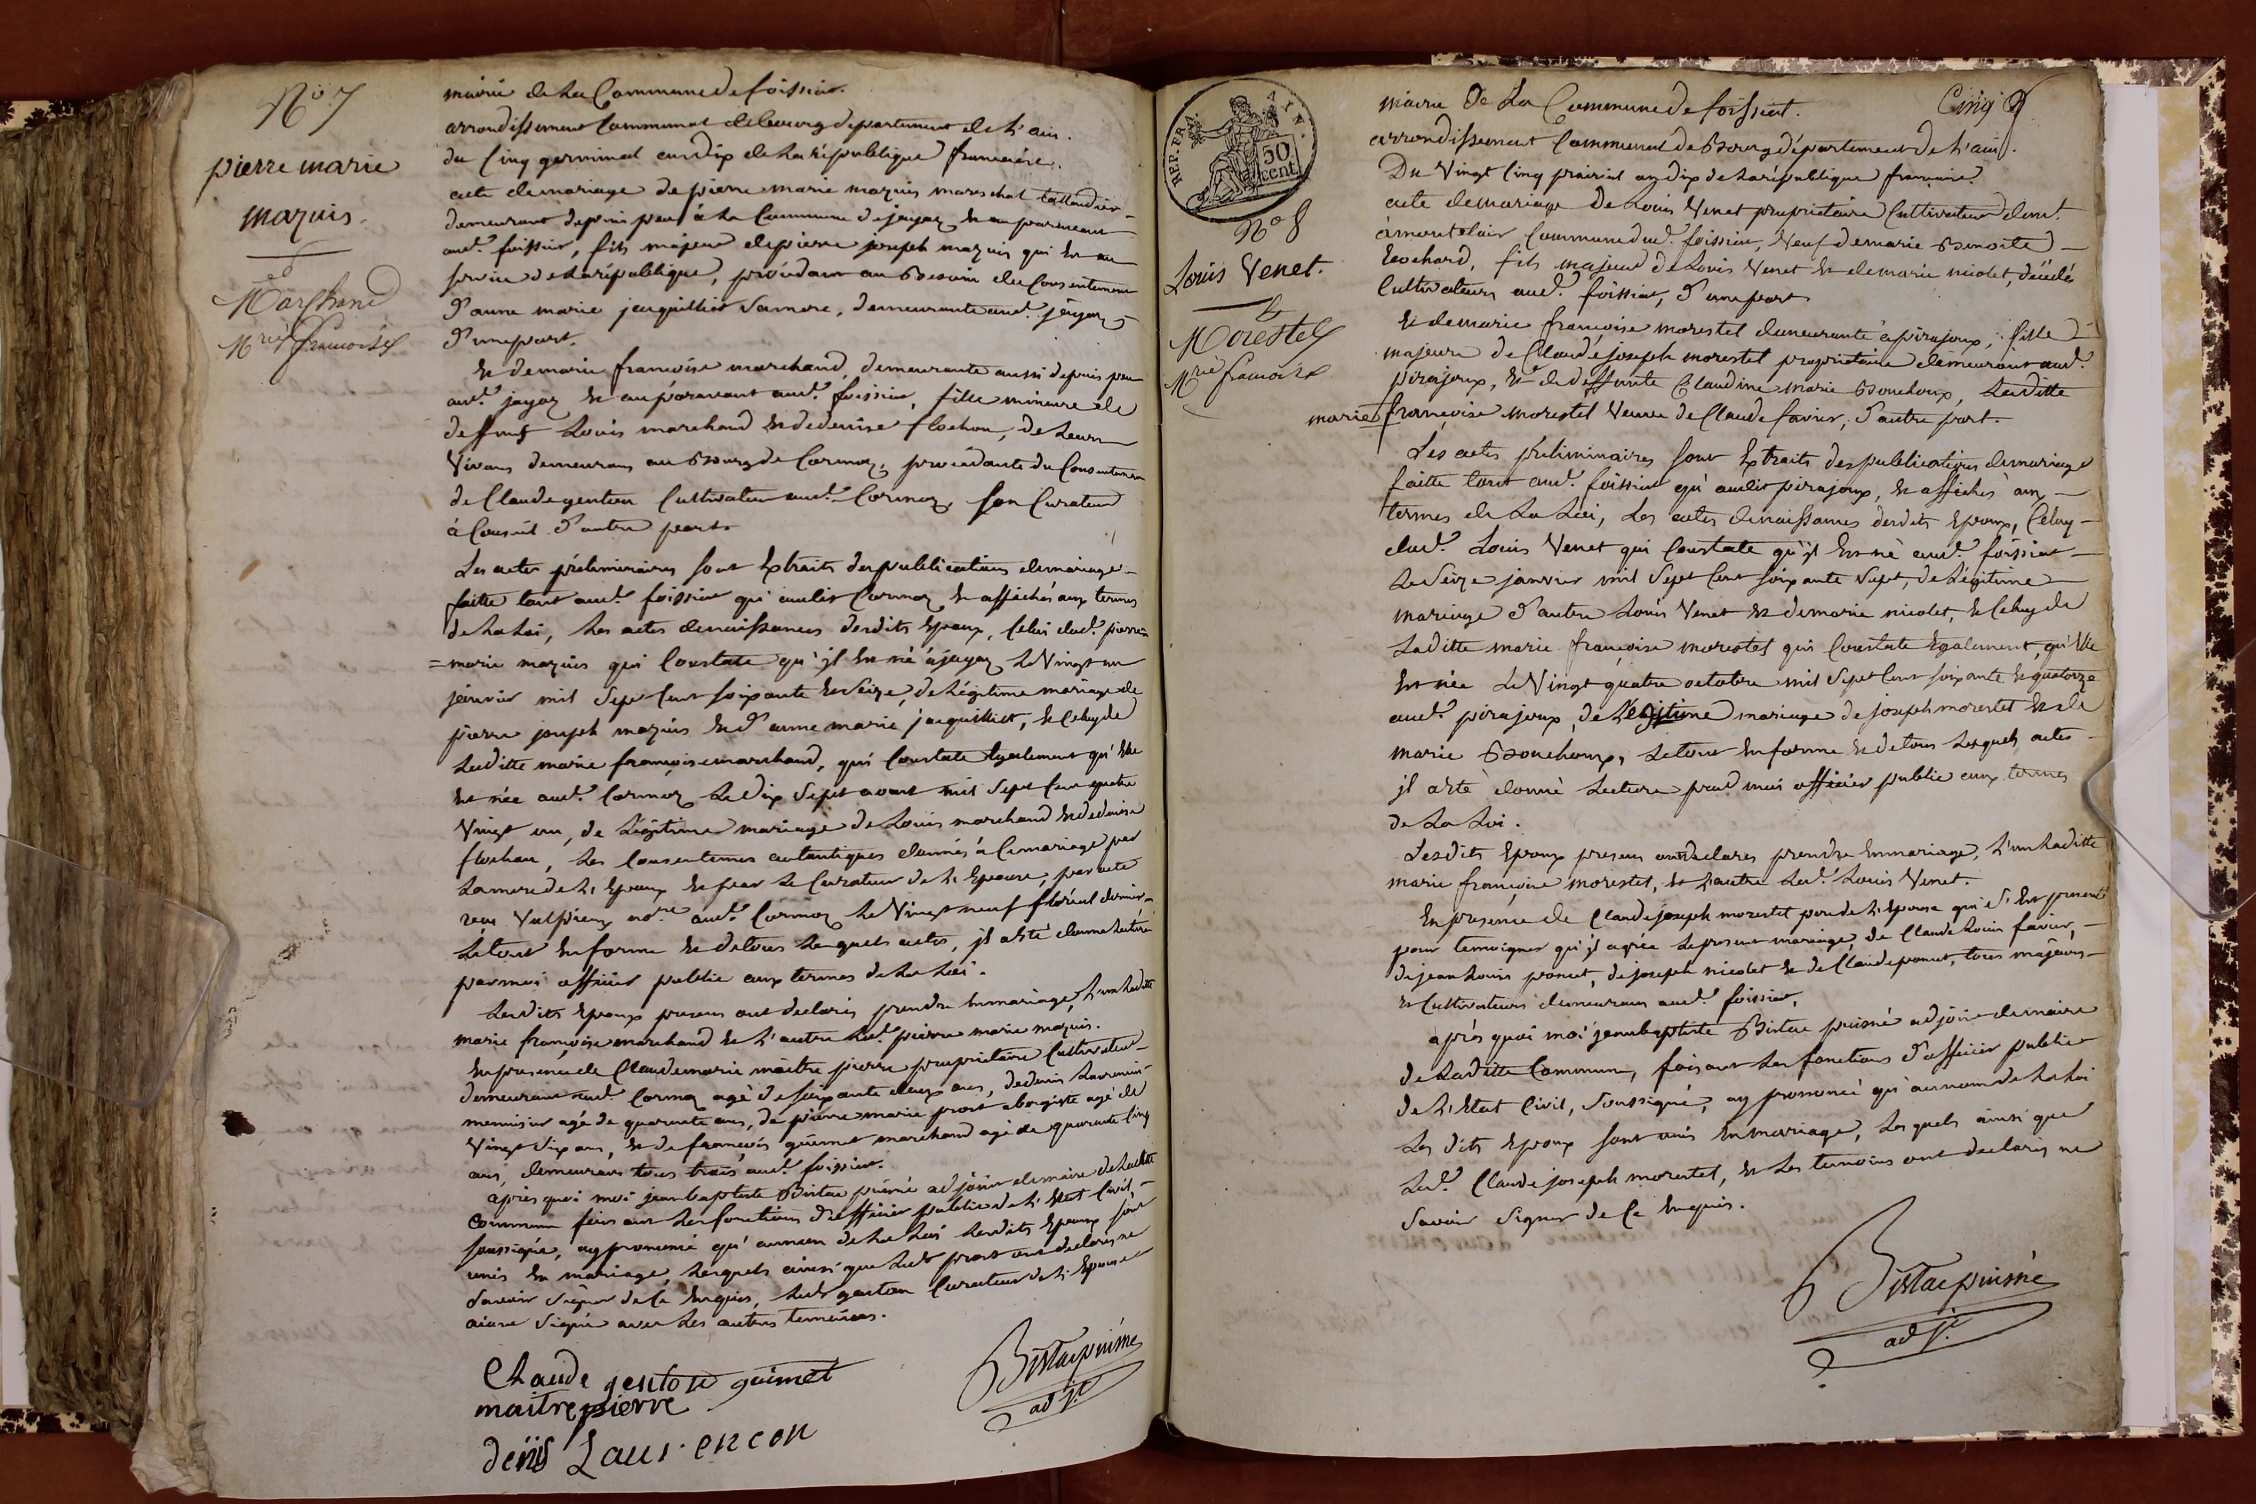 N.o 7
pierre marie
mazuis.
et
Marchand
M.rie françoise
mairie de La Commune de foissiat.
arrondissement Communal de bourg departement de L'ain.
du Cinq germinal an dix de La république francaise.
acte de mariage de pierre marie mazuis mareschal taillandier
demeurant depuis peu à La Commune de jayaz et auparavant
aud.t foissiat, fils majeur de pierre joseph mazuis qui est au
service de La république, procédant au Besoin du Consentement
d'anne marie jacquillet Sa mere, demeurante aud.t jayaz
d'une part.
Et de marie françoise marchand, demeurante aussi depuis peu
aud.t jayaz et auparavant aud.t foissiat, fille mineure de
deffunts Louis marchand et de denise flochon, de Leurs
Vivans demeurans au Bourg de Cormoz, procédante du Consentement
de Claude genton Cultivateur aud.t Cormoz, son Curateur
à Conseil d'autre part.
Les actes préliminaires sont Extraits des publications de mariage
faitte tant aud.t foissiat qu'audit Cormoz et affichés aux termes
de La Loi, Les actes de naissances desdits Epoux, Celui dud.t pierre
= marie mazuis qui Constate qu'il est né à jayaz Le Vingt un
janvier mil Sept Cent soixante et Seize, de Légitime mariage de
pierre joseph mazuis et d'anne marie jacquillet, et Celuy de
Laditte marie françoise marchand, qui Constate Egalement qu'Elle
est née aud.t Cormoz Le dix Sept aout mil Sept Cent quatre
Vingt un, de Légitime mariage de Louis marchand et de denise
flochon, Les Consentemens autantiques donnés à Ce mariage par
La mere de L'Epoux et par Le Curateur de L'Epouse, par acte
reçu Vulpieux no.re aud.t Cormoz Le Vingt neuf floréal dernier
Le tout En forme et de tous Lesquels actes, il a été donné Lecture
par moi officier public aux termes de La Loi.
Lesdits Epoux presens ont declarés prendre En mariage, L'un Laditte
marie françoise marchand et L'autre Led.t pierre marie mazuis.
En presence de Claude marie maitre pierre proprietaire Cultivateur
demeurant aud.t Cormoz agé de soixante deux ans, de denis Laurencon
menuisier agé de quarante ans, de pierre marie prost abergiste agé de
Vingt Six ans, et de françois guimet marchand agé de quarante Cinq
ans, demeurans tous trois aud.t foissiat.
après quoi moi jean baptiste Bistac puisné adjoint de maire de Laditte
Commune faisant Les fonctions d'officier public de L'Etat Civil,
soussigné, ay prononcé qu'au nom de La Loi Lesdits Epoux sont
unis En mariage, Lesquels ainsi que Led.t prost ont declarés ne
Savoir Signer de Ce Enquis, Led.t genton Curateur de L'Epouse
aiant Signé avec Les autres temoins.
Claude genton guimet
maitrepierre
denis Laurencon
Bistac puisné
adj.t
REP. FRA.
AIN.
50
cent.
N.o 8
Louis Venet.
&
Morestel
M.rie francoise
Cinq
mairie De La Commune de foissiat.
arrondissement Communal de Bourg département de L'ain.
Du Vingt Cinq prairial an dix de La république francaise.
acte de mariage de Louis Venet proprietaire Cultivateur dem.t
à montclair Commune dud.t foissiat, Veuf de marie Benoite
Bochard, fils majeur de Louis Venet et de marie nicolet, décédés
Cultivateurs aud.t foissiat, d'une part
Et de marie françoise morestel demeurante à pirajoux, fille
majeure de Claude joseph morestel proprietaire demeurant aud.t
pirajoux, et de deffunte Claudine marie Bouchoux, Laditte
marie françoise morestel Veuve de Claude favier, d'autre part.
Les actes préliminaires sont Extraits des publications de mariage
faitte tant aud.t foissiat qu'audit pirajoux, et affichés aux
termes de La Loi, Les actes de naissances desdits Epoux, Celuy
dud.t Louis Venet qui Constate qu'il est né aud.t foissiat
Le Seize janvier mil Sept Cent soixante Sept, de Légitime
mariage d'autre Louis Venet et de marie nicolet, et Celuy de
Laditte marie françoise morestel qui Constate Egalement, qu'Elle
est née Le Vingt quatre octobre mil Sept Cent soixante et quatorze
aud.t pirajoux, de Légitime mariage de joseph morestel et de
marie Bouchoux, Le tout En forme et de tous Lesquels actes
il a été donné Lecture par moi officier public aux termes
de La Loi.
Lesdits Epoux presens ont declarés prendre En mariage, L'un Laditte
marie françoise morestel, et L'autre Led.t Louis Venet.
En presence de Claude joseph morestel pere de L'Epouse qui S'est presenté
pour temoigner qu'il agrée Le present mariage, de Claude Louis favier,
de jean Louis poncet, de joseph nicolet et de Claude poncet, tous majeurs
et Cultivateurs demeurans aud.t foissiat,
après quoi moi jean baptiste Bistac puisné adjoint de maire
de Laditte Commune, faisant Les fonctions d'officier public
de L'Etat Civil, soussigné, ay prononcé qu'au nom de La Loi
Les dits Epoux sont unis En mariage, Lesquels ainsi que
Led.t Claude joseph morestel, et Les temoins ont declarés ne
Savoir Signer de Ce Enquis.
Bistac puisné
adj.t